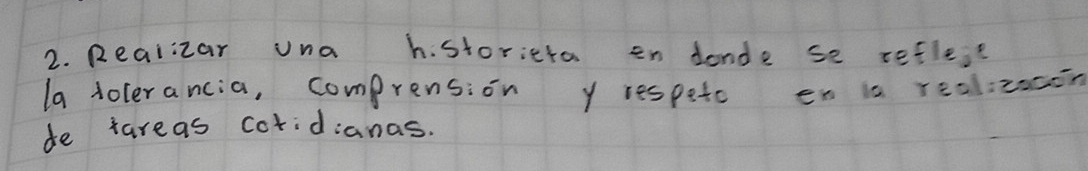 2. Realizar una historieta en donde se refleje
la tolerancia, comprensión y respeto en la realización
de tareas cotidianas.